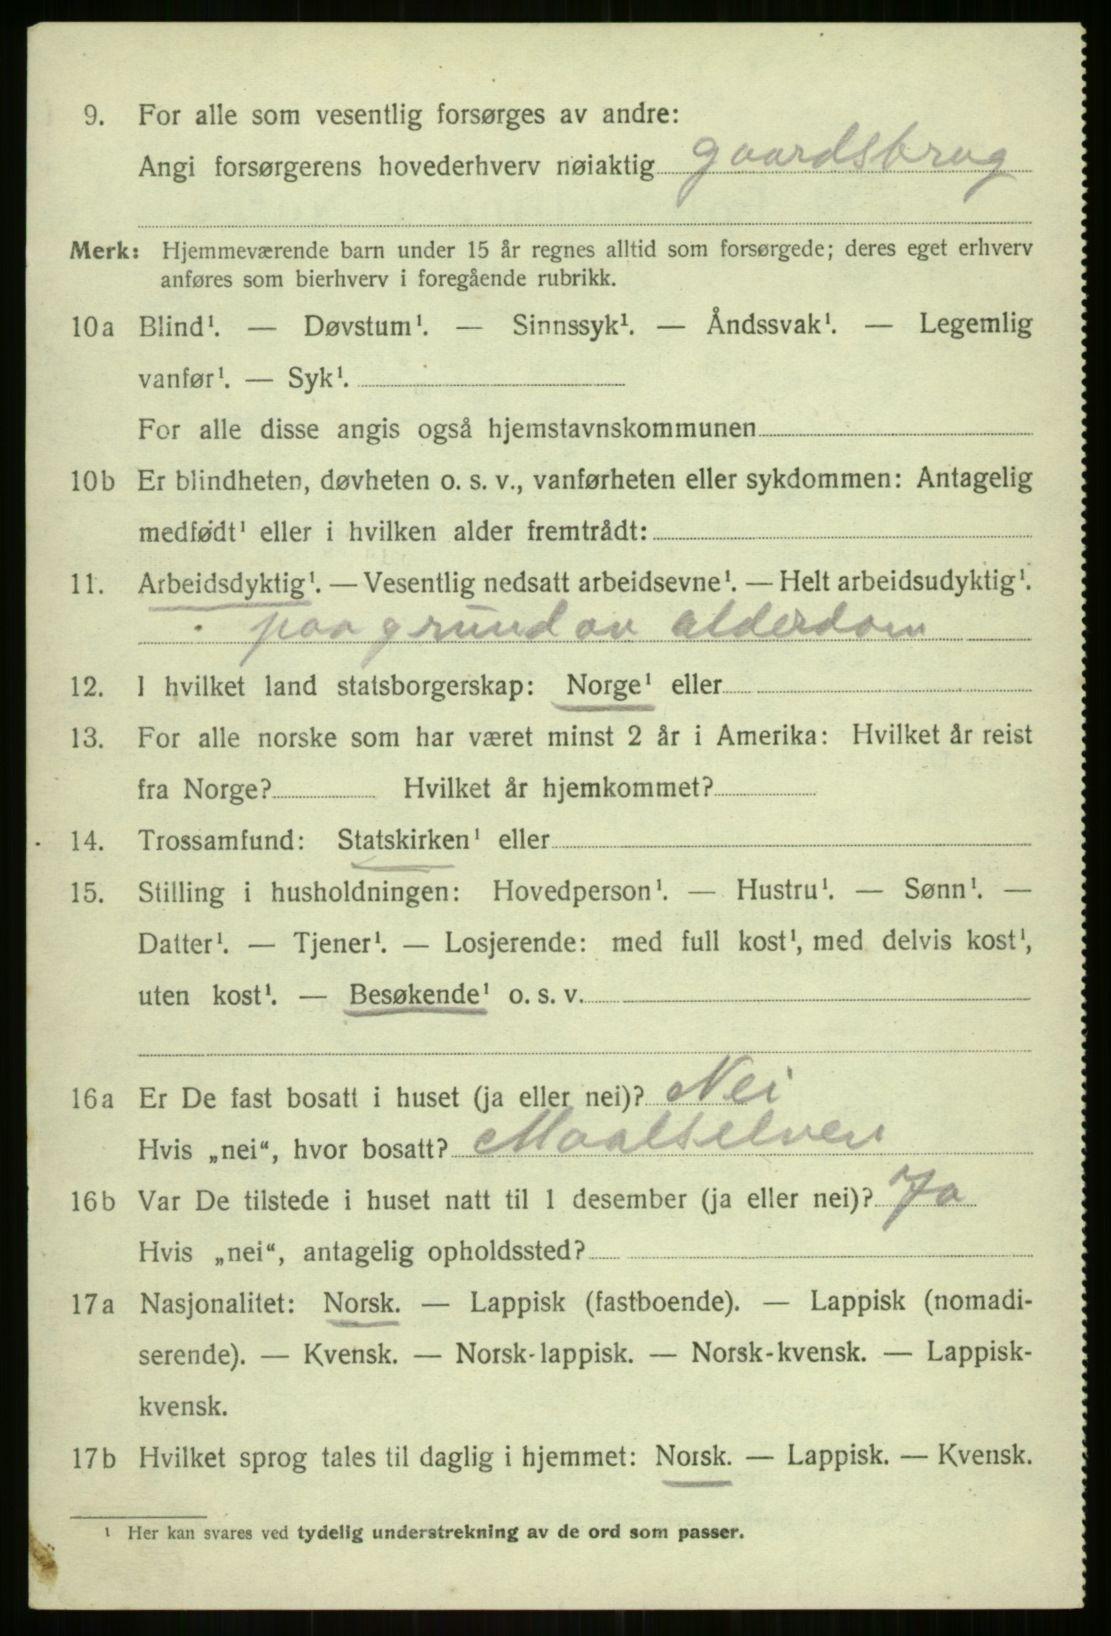 9. For alle som vesentlig forsørges av andre:
Angi forsørgerens hovederhverv nøiaktig gaardsbrug
Merk: Hjemmeværende barn under 15 år regnes alltid som forsørgede; deres eget erhverv
anføres som bierhverv i foregående rubrikk.
10a Blind¹. — Døvstum¹. — Sinnssyk¹. — Åndssvak¹. — Legemlig
vanfør¹. — Syk¹.
For alle disse angis også hjemstavnskommunen
10b Er blindheten, døvheten o. s. v., vanførheten eller sykdommen: Antagelig
medfødt¹ eller i hvilken alder fremtrådt:
11. Arbeidsdyktig¹. — Vesentlig nedsatt arbeidsevne¹. — Helt arbeidsudyktig¹.
paa grund av alderdom
12. I hvilket land statsborgerskap: Norge¹ eller
13. For alle norske som har været minst 2 år i Amerika: Hvilket år reist
fra Norge? Hvilket år hjemkommet?
14. Trossamfund: Statskirken¹ eller
15. Stilling i husholdningen: Hovedperson¹. — Hustru¹. — Sønn¹. —
Datter¹. — Tjener¹. — Losjerende: med full kost¹, med delvis kost¹,
uten kost¹. — Besøkende¹ o. s. v.
16a Er De fast bosatt i huset (ja eller nei)? Nei
Hvis „nei“, hvor bosatt? Maalselven
16b Var De tilstede i huset natt til 1 desember (ja eller nei)? Ja
Hvis „nei“, antagelig opholdssted?
17a Nasjonalitet: Norsk. — Lappisk (fastboende). — Lappisk (nomadi-
serende). — Kvensk. — Norsk-lappisk. — Norsk-kvensk. — Lappisk-
kvensk.
17b Hvilket sprog tales til daglig i hjemmet: Norsk. — Lappisk. — Kvensk.
¹ Her kan svares ved tydelig understrekning av de ord som passer.